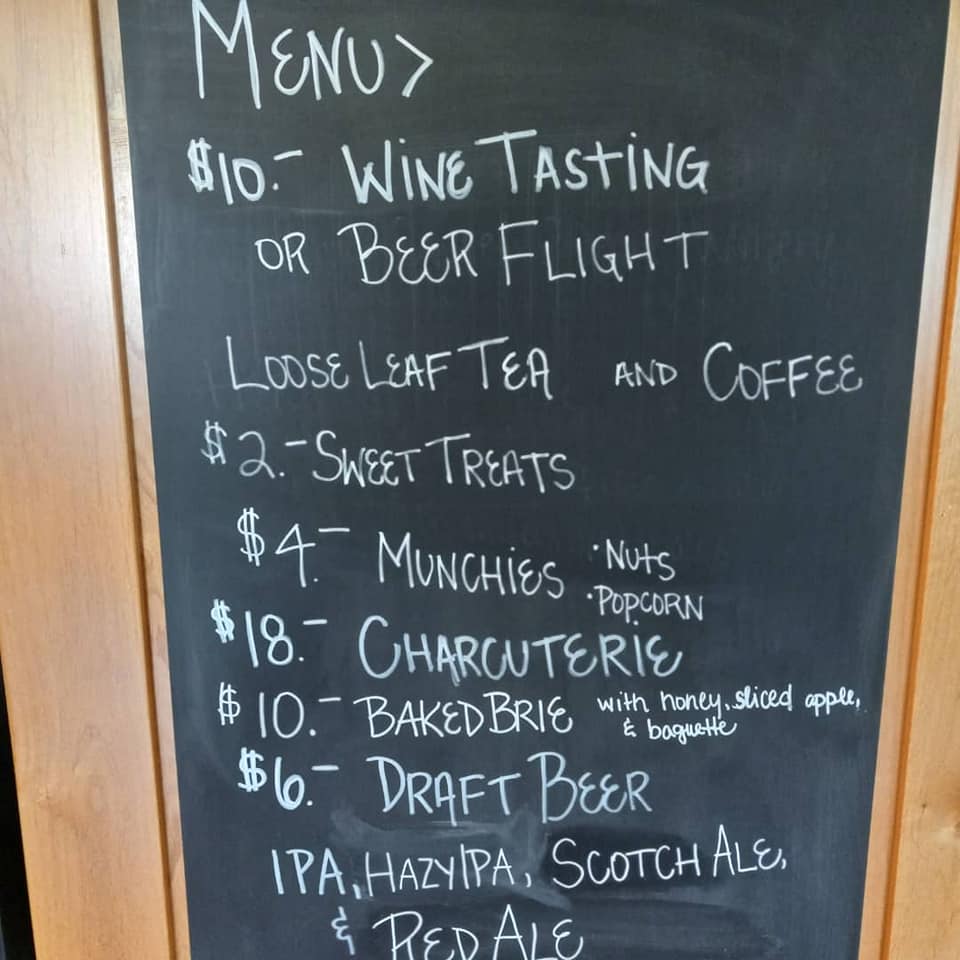 MENU>
$10.- WINE TASTING
OR BEER FLIGHT
LOOSE LEAF TEA AND COFFEE
$2.- SWEET TREATS
$4.- MUNCHIES •NUTS
•POPCORN
$18.- CHARCUTERIE
$10.- BAKED BRIE with honey, sliced apple,
& baguette
$6.- DRAFT BEER
IPA, HAZY IPA, SCOTCH ALE,
& RED ALE